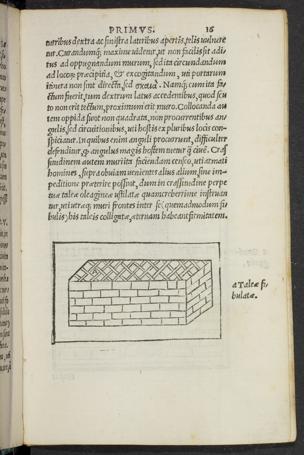 PRIMVS. 16
turribus dextra ac sinistra lateribus apertis, telis vulnere
tur. Curandumq; maxime videtur, ut non facilis sit adi
tus ad oppugnandum murum, sed ita circundandum
ad loca præcipitia, & excogitandum, uti portarum
itinera non sint directa, sed σκαιὰ. Namq; cum ita fa
ctum fuerit, tum dextrum latus accedentibus, quod scu
to non erit tectum, proximum erit muro. Collocanda au
tem oppida sunt non quadrata, non procurrentibus an
gulis, sed circuitionibus, uti hostis ex pluribus locis con
spiciatur. In quibus enim anguli procurrunt, difficulter
defenditur, q; angulus magis hostem tuetur q̃ ciuẽ. Cras
situdinem autem muri ita faciendam censeo, uti armati
homines, supra obuiam venientes alius alium sine im-
peditione præterire possint, dum in crassitudine perpe
tuæ taleæ oleagineæ ustilatæ quamcreberrime instruan
tur, uti utræq; muri frontes inter se (quemadmodum fi
bulis) his taleis colligatæ, æternam habeant firmitatem.
a Taleæ fi-
bulatæ.